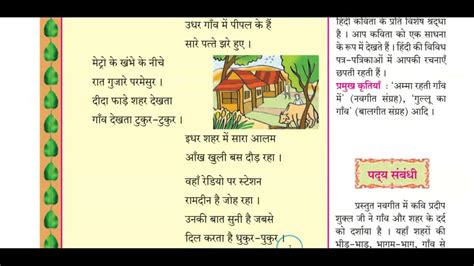 उधर गाँव में पीपल के हैं
सारे पत्ते झरे हुए ।
मेट्रो के खंभे के नीचे
रात गुजारे परमेसुर ।
दीदा फाड़े शहर देखता
गाँव देखता टुकुर-टुकुर ।
इधर शहर में सारा आलम
आँख खुली बस दौड़ रहा ।
वहाँ रेडियो पर स्टेशन
रामदीन है जोह रहा ।
उनकी बात सुनी है जबसे
दिल करता है धुकुर-पुकुर ।
हिंदी कविता के प्रति विशेष श्रद्धा
है । आप कविता को एक साधना
के रूप में देखते हैं । हिंदी की विविध
पत्र-पत्रिकाओं में आपकी रचनाएँ
छपती रहती हैं ।
प्रमुख कृतियाँ : ‘अम्मा रहती गाँव
में’ (नवगीत संग्रह), ‘गुल्लू का
गाँव’ (बालगीत संग्रह) आदि ।
पद्य संबंधी
प्रस्तुत नवगीत में कवि प्रदीप
शुक्ल जी ने गाँव और शहर के दर्द
को दर्शाया है । यहाँ शहरों की
भीड़-भाड़, भागम-भाग, गाँव से